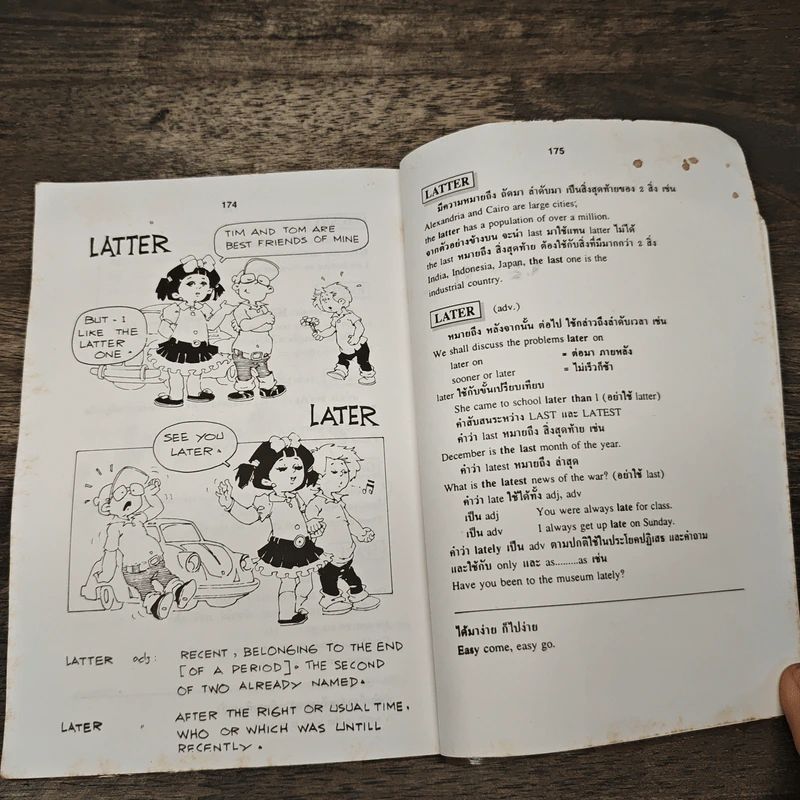 174
LATTER
TIM AND TOM ARE
BEST FRIENDS OF MINE
BUT - I
LIKE THE
LATTER
ONE.
LATER
SEE YOU
LATER.
LATTER adj: RECENT, BELONGING TO THE END
[OF A PERIOD]. THE SECOND
OF TWO ALREADY NAMED.
LATER " AFTER THE RIGHT OR USUAL TIME.
WHO OR WHICH WAS UNTILL
RECENTLY.
175
LATTER
มีความหมายถึง ถัดมา ลำดับมา เป็นสิ่งสุดท้ายของ 2 สิ่ง เช่น
Alexandria and Cairo are large cities;
the latter has a population of over a million.
จากตัวอย่างข้างบน จะนำ last มาใช้แทน latter ไม่ได้
the last หมายถึง สิ่งสุดท้าย ต้องใช้กับสิ่งที่มีมากกว่า 2 สิ่ง
India, Indonesia, Japan, the last one is the
industrial country.
LATER (adv.)
หมายถึง หลังจากนั้น ต่อไป ใช้กล่าวถึงลำดับเวลา เช่น
We shall discuss the problems later on
later on = ต่อมา ภายหลัง
sooner or later = ไม่เร็วก็ช้า
later ใช้กับขั้นเปรียบเทียบ
She came to school later than I (อย่าใช้ latter)
คำสับสนระหว่าง LAST และ LATEST
คำว่า last หมายถึง สิ่งสุดท้าย เช่น
December is the last month of the year.
คำว่า latest หมายถึง ล่าสุด
What is the latest news of the war? (อย่าใช้ last)
คำว่า late ใช้ได้ทั้ง adj, adv
เป็น adj You were always late for class.
เป็น adv I always get up late on Sunday.
คำว่า lately เป็น adv ตามปกติใช้ในประโยคปฏิเสธ และคำถาม
และใช้กับ only และ as.........as เช่น
Have you been to the museum lately?
ได้มาง่าย ก็ไปง่าย
Easy come, easy go.